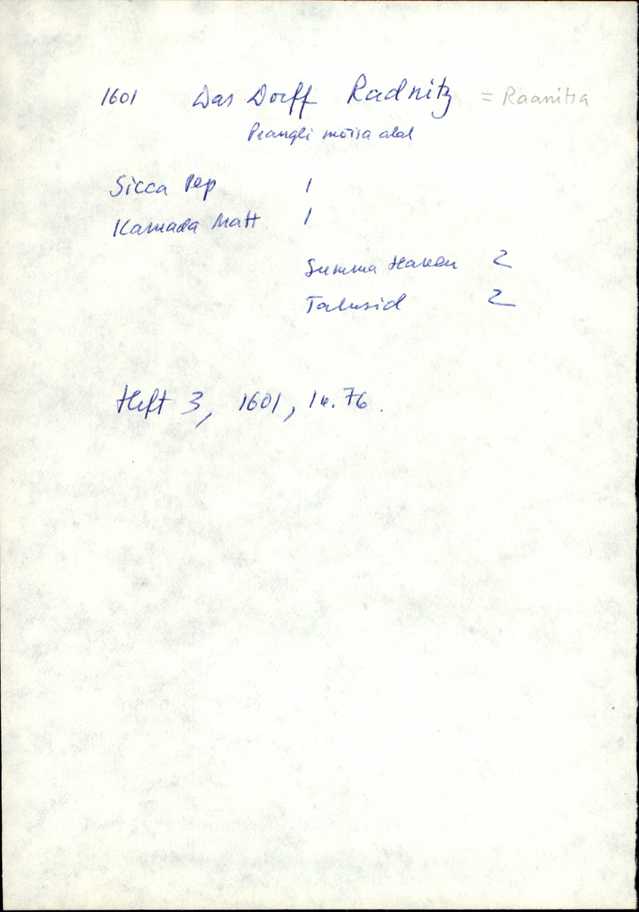 1601 Das Dorff Radnitz = Raanitsa
Prangli mõisa alal
Sicca Pep 1
Kamada Matt 1
Summa Haken 2
Talusid 2
Heft 3, 1601, lk. 76.